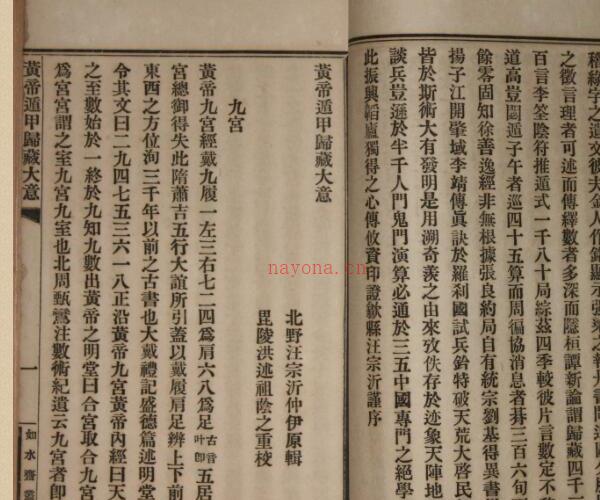 之徵言理者可述而傳繹數者多深而隱桓譚新論謂歸藏四千
百言李筌陰符推遁式一千八十局綜茲四季較彼片言數定不
道高豈閟遁子午者巡四十五算而周徧協消息者朞三百六旬
餘零固知徐善逸經非無根據張良約局自有統宗劉基得異書
揚子江開肇域李靖傳眞訣於羅刹國試兵鈐特破天荒大啓民
皆於斯術大有發明是用溯奇羨之由來攷佚存於迹象天陣地
談兵豈遜於半千人門鬼門演算必通於三五中國專門之絕學
此振興韜廬獨得之心傳攸資印證歙縣汪宗沂謹序
黃帝遁甲歸藏大意
北野汪宗沂仲伊原輯
毘陵洪述祖蔭之重校
九宮
黃帝九宮經戴九履一左三右七二四爲肩六八爲足古音叶卽五居
宮總御得失此隋蕭吉五行大誼所引蓋以戴履肩足辨上下前
東西之方位洵三千年以前之古書也大戴禮記盛德篇述明堂
令其文曰二九四七五三六一八正沿黃帝九宮黃帝內經曰天
之至數始於一終於九知九數出黃帝之明堂曰合宮取合九宮
爲宮宮謂之室九宮九室也北周甄鸞注數術紀遺云九宮者卽
黃帝遁甲歸藏大意
一
如水齋叢
nayona.cn